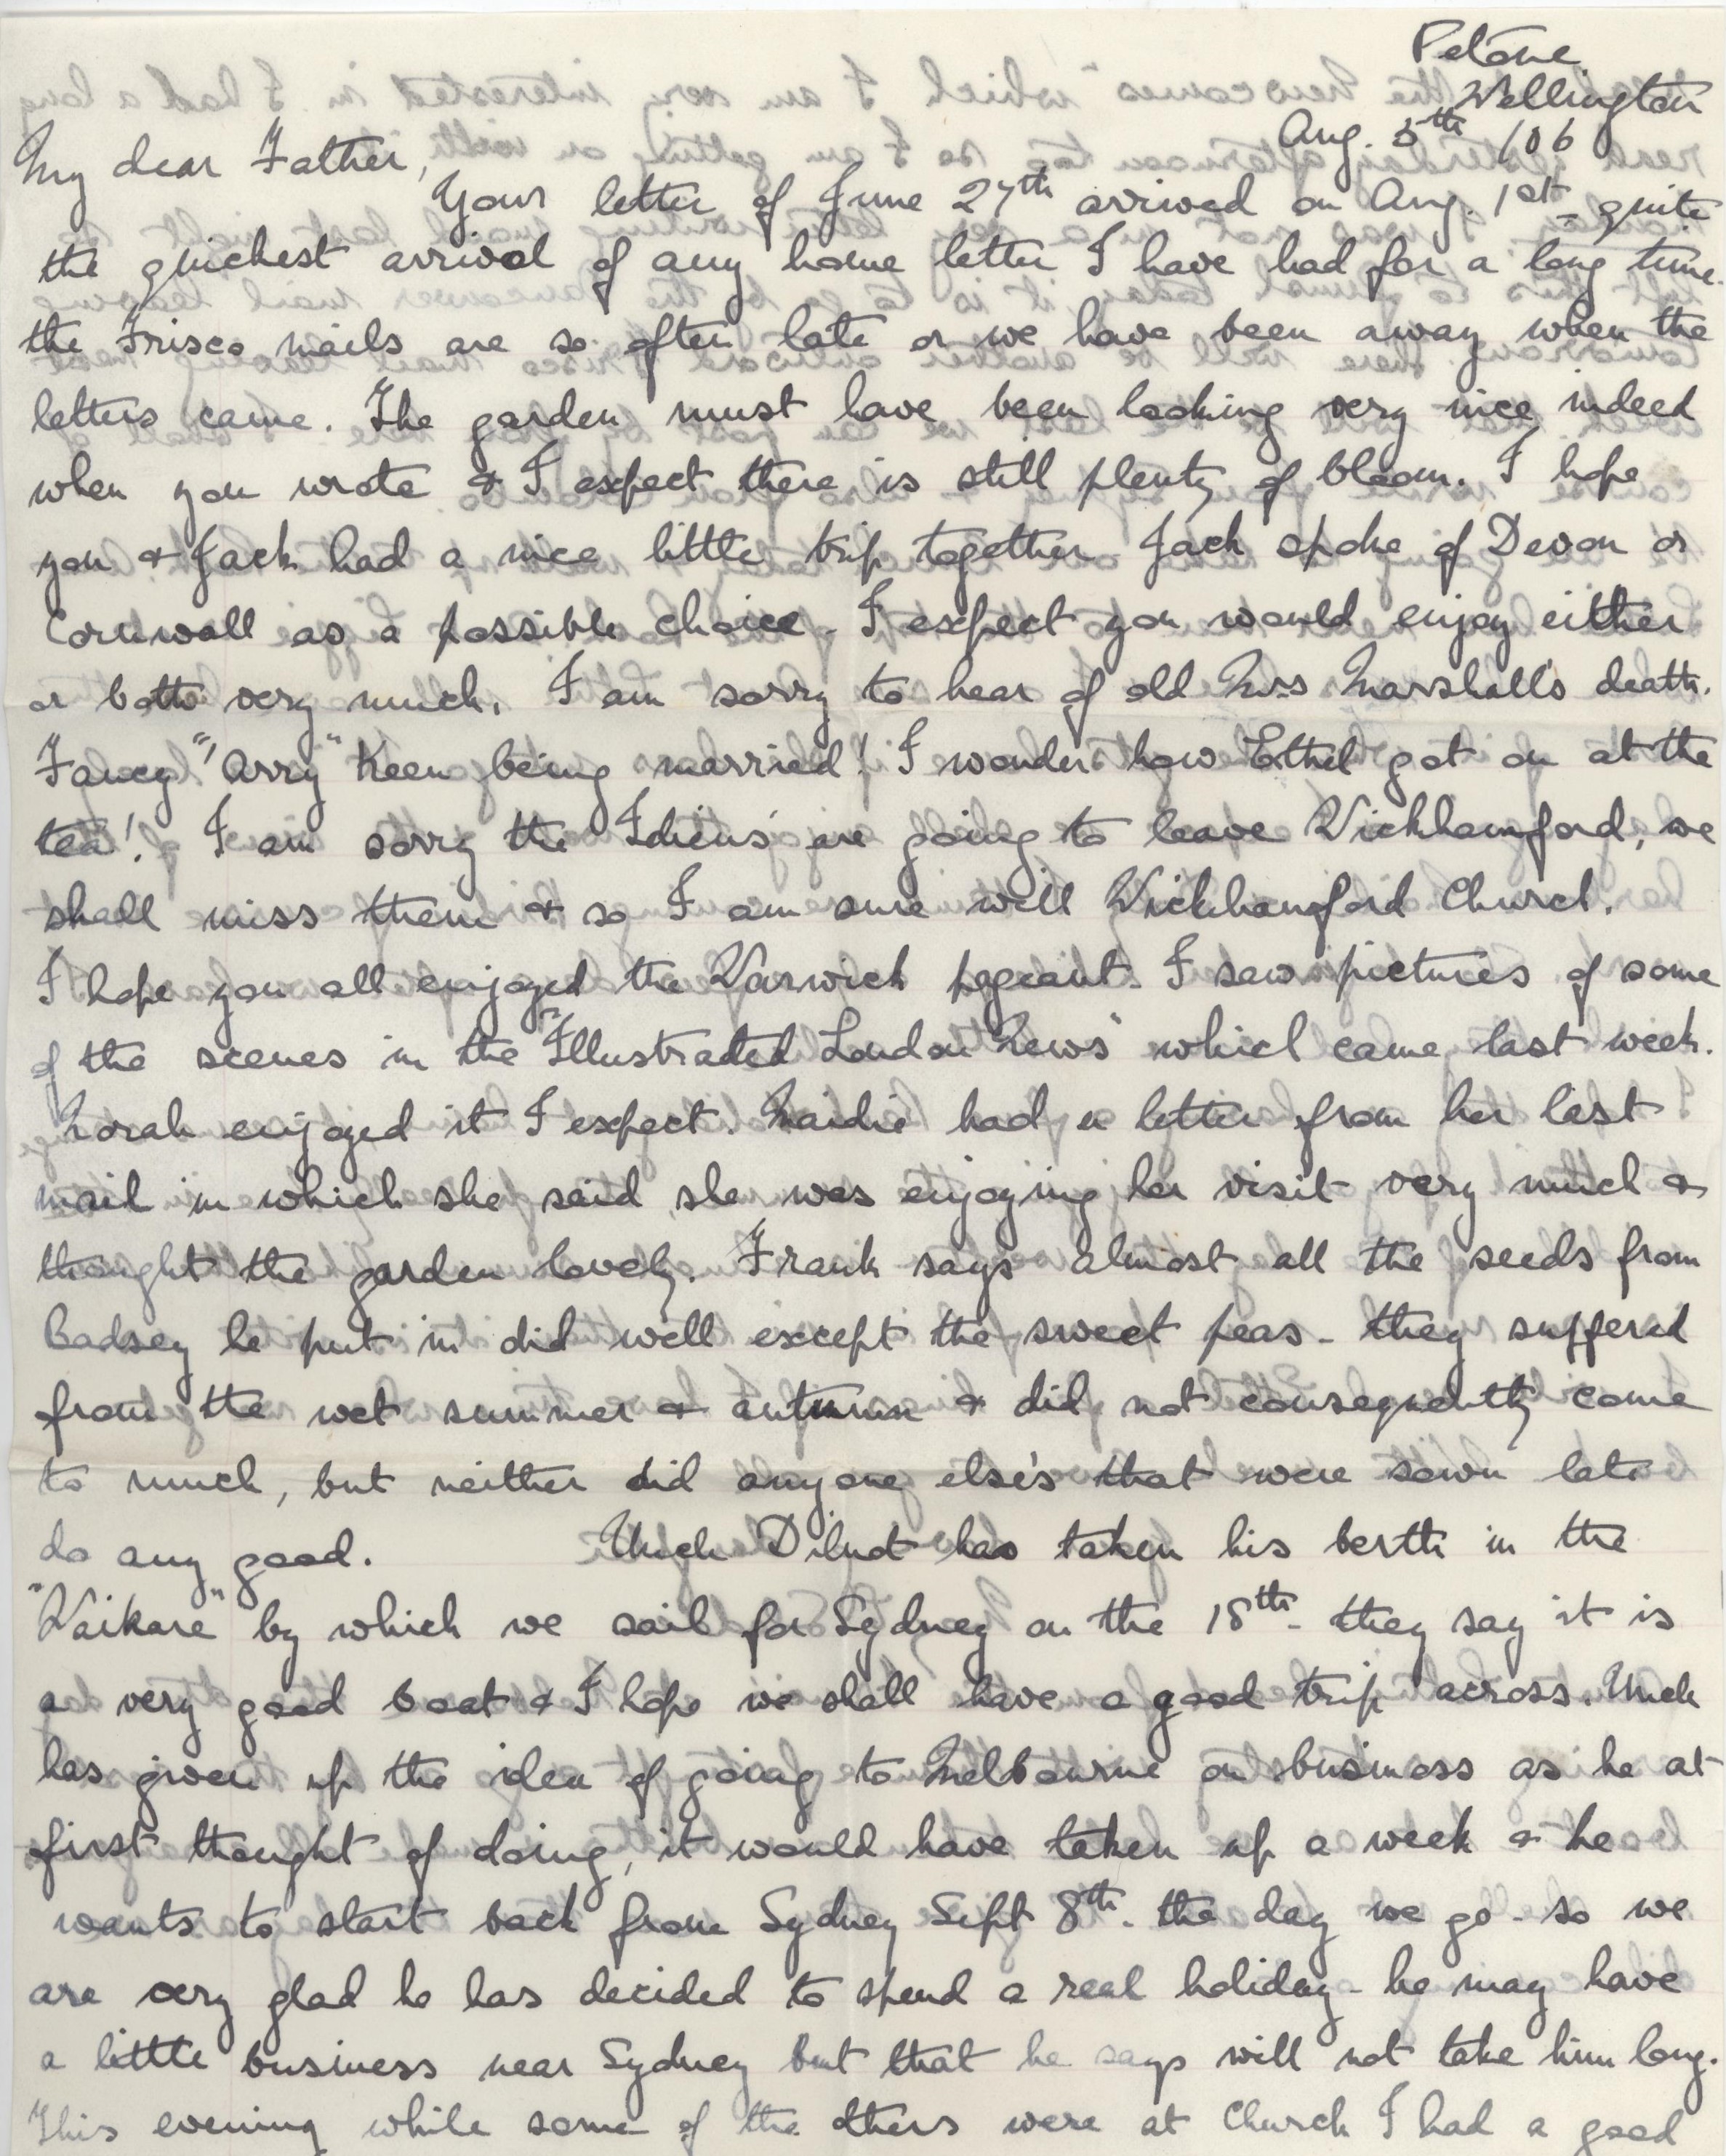 Petone.
Wellington
Aug. 5th /06
My dear Father,
Your letter of June 27th arrived on Aug. 1st - quite
the quickest arrival of any home letter I have had for a long time.
the Frisco mails are so often late or we have been away when the
letters came. The garden must have been looking very nice indeed
when you wrote & I expect there is still plenty of bloom. I hope
you & Jack had a nice little trip together. Jack spoke of Devon or
Cornwall as a possible choice - I expect you would enjoy either
or both very much. I am sorry to hear of old Mrs Marshall's death.
Fancy "'Arry" Keen being married! I wonder how Ethel got on at the
tea! I am sorry the Idiens' are going to leave Wickhamford, we
shall miss them & so I am sure will Wickhamford Church.
I hope you all enjoyed the Warwick pageant - I saw pictures of some
of the scenes in the "Illustrated London News" which came last week.
Norah enjoyed it I expect. Naidie had a letter from her last
mail in which she said she was enjoying her visit very much &
thought the garden lovely. Frank says almost all the seeds from
Badsey he put in did well except the sweet peas - they suffered
from the wet summer & autumn & did not consequently come
to much, but neither did anyone else's that were sown late
do any good. Uncle Dilnot has taken his berth in the
"Waikare" by which we sail for Sydney on the 18th - they say it is
a very good boat & I hope we shall have a good trip across. Uncle
has given up the idea of going to Melbourne on business as he at
first thought of doing, it would have taken up a week & he
wants to start back from Sydney Sept 8th - the day we go - so we
are very glad he has decided to spend a real holiday - he may have
a little business near Sydney but that he says will not take him long.
This evening while some of the others were at Church I had a good